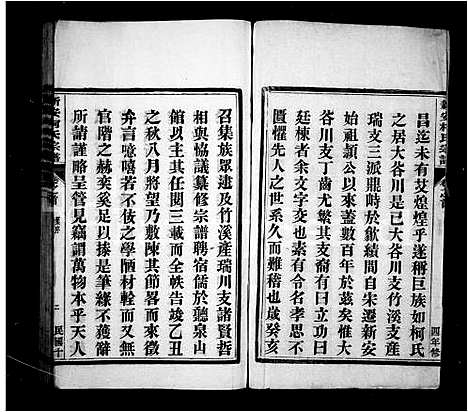 昌迄未有艾煌煌乎遂稱巨族如柯氏
之居大谷川是已大谷川支竹溪支產
瑞支三派肥時於歙績間自宋遷新安
始祖顒公以來蓋數百年於茲矣惟大
谷川支丁齒尤繁其支裔有曰與六曰
廷棟者余文字交也有令名孝思不
匱懼先人之世系久而難稽也歲癸亥
召集族眾建及竹溪產瑞川支諸賢哲
相與協議纂修宗譜聘宿儒於聽泉山
館以主其任閱三載而全帙告竣乙丑
之秋八月將望乃敷陳其情囑予一言以
弁言噫嘻若予之學陋材輇而又無
官階之赫奕奚足以操是筆緣不獲
所請謹略呈管見竊謂萬物本乎天人
新安柯氏宗譜
卷之首
四年修
新安柯氏宗譜
卷之首
二
民國十